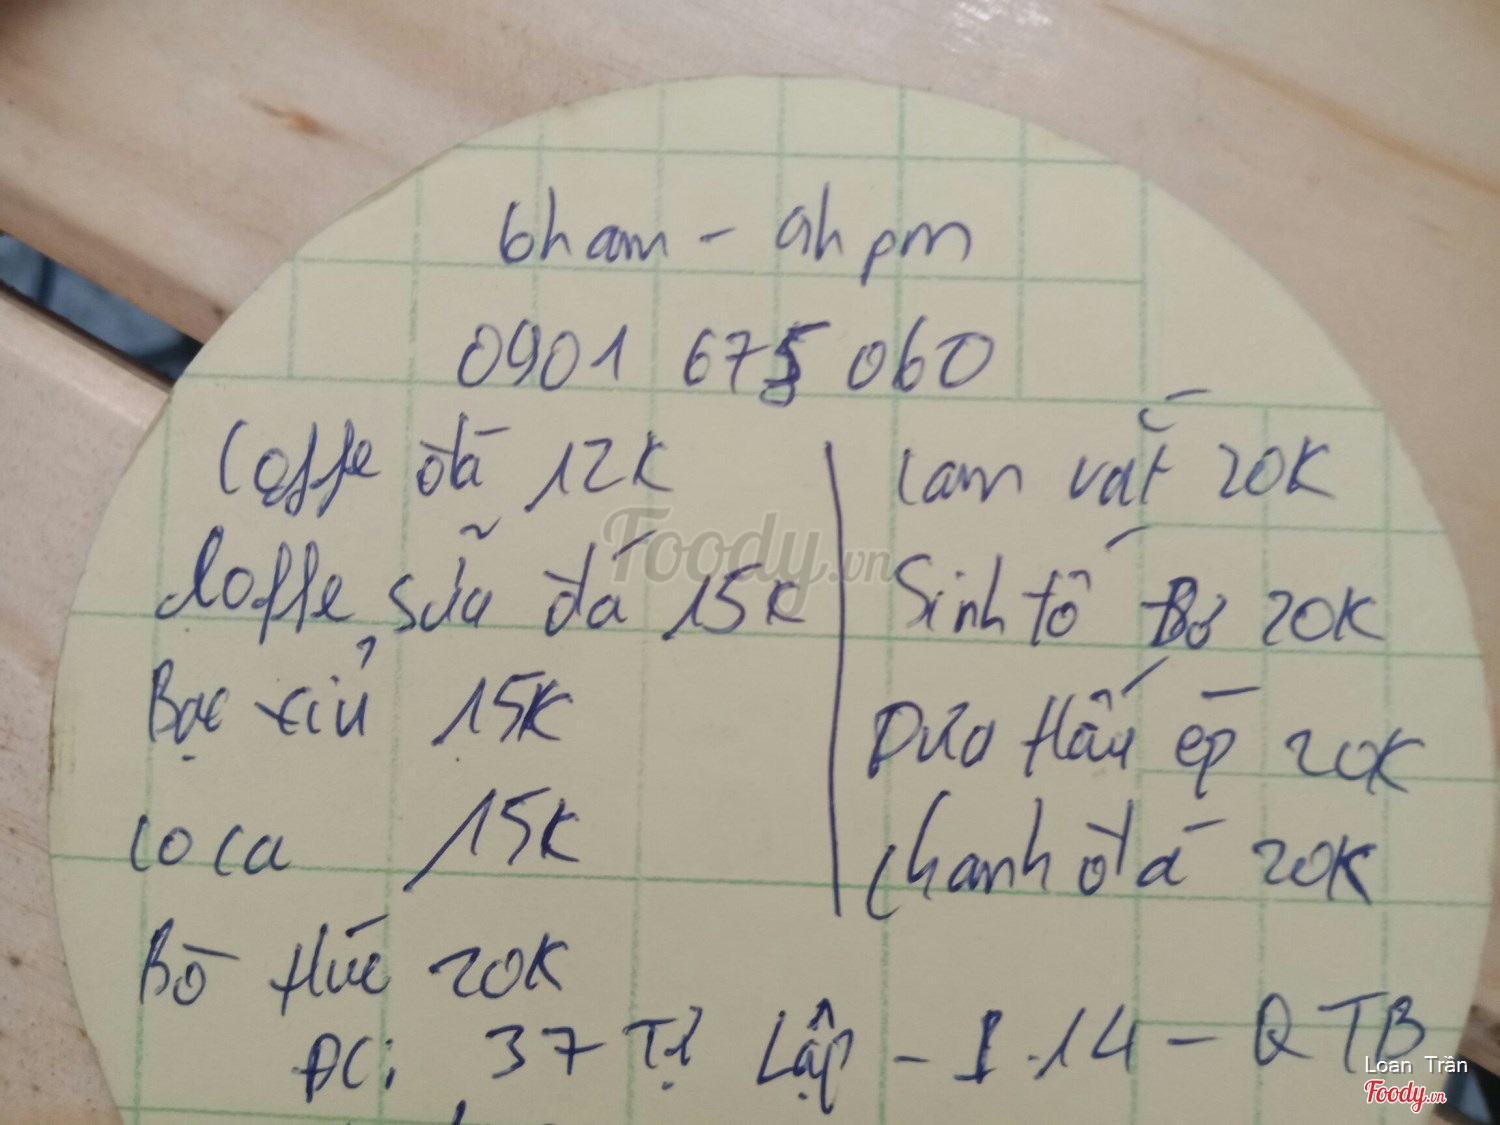 6h am - 9h pm
0901 675 060
Coffe đá 12K
Coffe sữa đá 15K
Bạc xỉu 15K
Coca 15K
Bò Húc 20K
Cam vắt 20K
Sinh tố Bơ 20K
Dưa Hấu ép 20K
Chanh đá 20K
ĐC: 37 Tự Lập - P.14 - QTB
Foody.vn
Loan Trần
Foody.vn